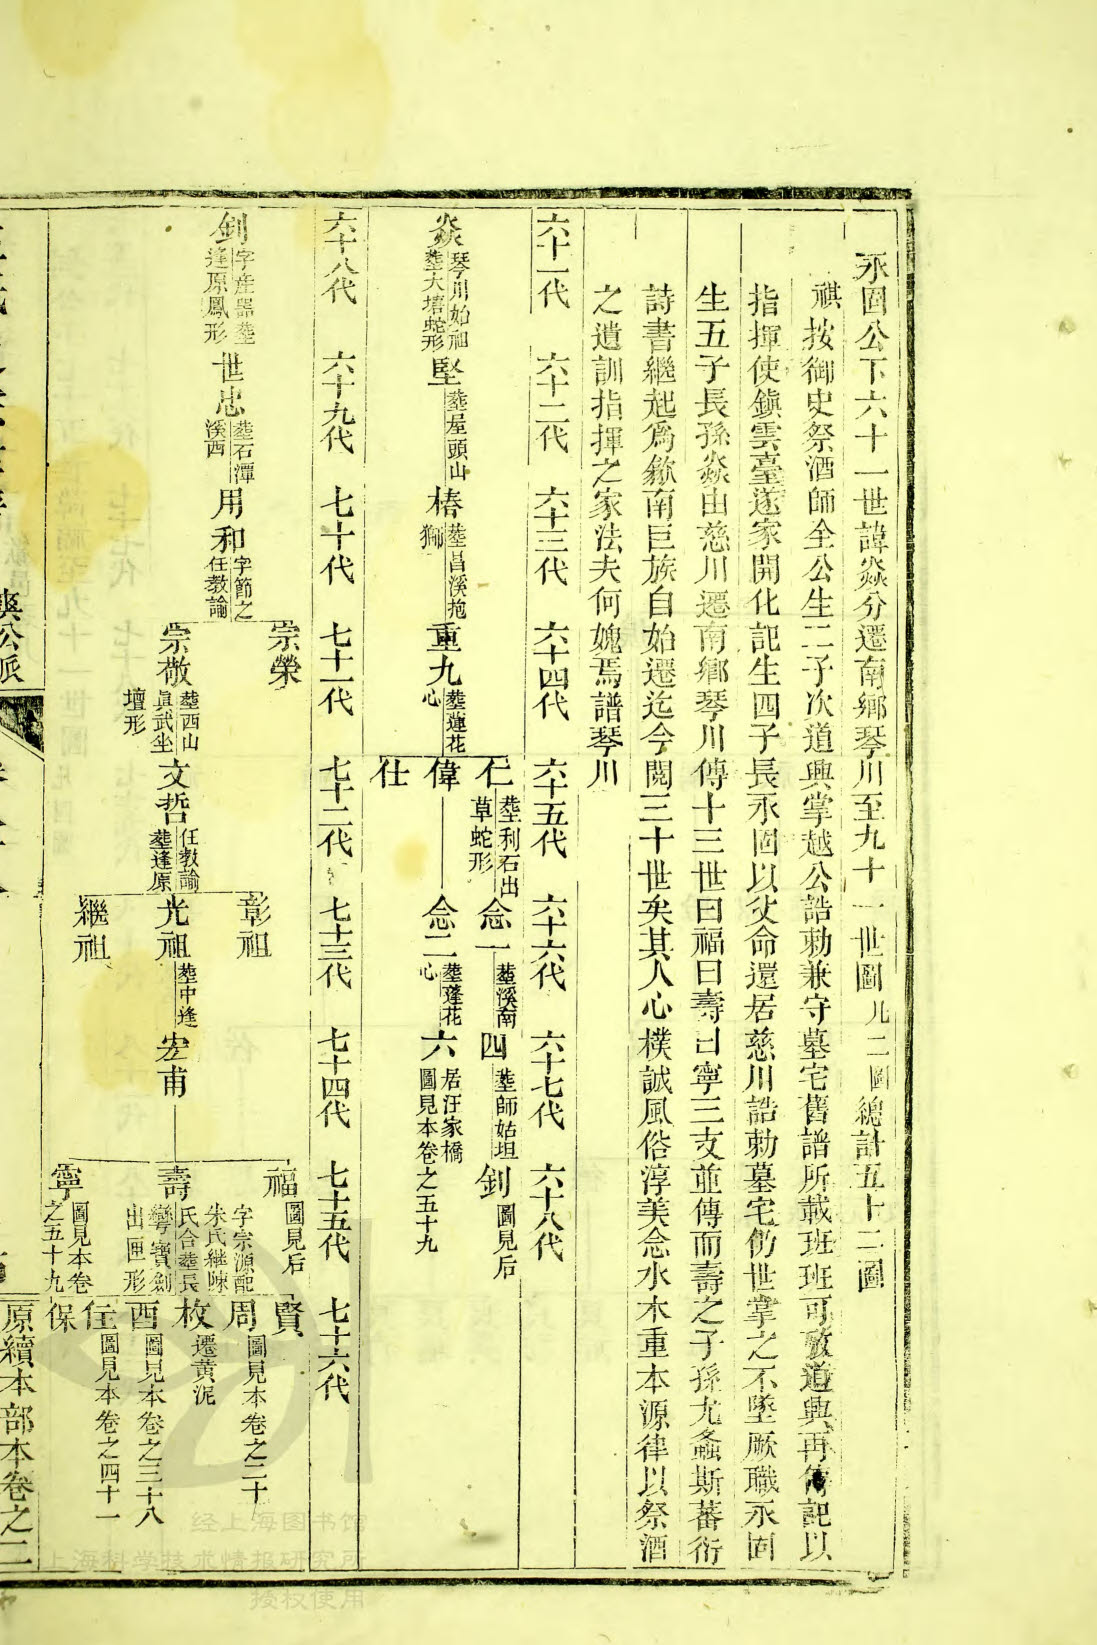 永固公下六十一世諱焱分遷南鄉琴川至九十一世圖凡二圖總計五十二圖
祺按御史祭酒師全公生二子次道興掌越公誥勅兼守墓宅舊譜所載班班可考道興再傳記以
指揮使鎭雲臺遂家開化記生四子長永固以父命還居慈川誥勅墓宅仍世掌之不墜厥職永固
生五子長孫焱由慈川遷南鄉琴川傳十三世曰福曰壽曰寧三支並傳而壽之子孫尤螽斯蕃衍
詩書繼起爲歙南巨族自始遷迄今閱三十世矣其人心樸誠風俗淳美念水木重本源律以祭酒
之遺訓指揮之家法夫何媿焉譜琴川
六十一代 六十二代 六十三代 六十四代 六十五代 六十六代 六十七代 六十八代
仁 葬利石出草蛇形 念一 葬溪南 四 葬師姑坦 釗 圖見后
焱 琴川始祖葬大墻蛇形 堅 葬屋頭山 椿 葬昌溪抱獅 重九 葬蓮花心 偉 念二 葬蓮花心 六 居汪家橋圖見本卷之五十九
仕
六十八代 六十九代 七十代 七十一代 七十二代 七十三代 七十四代 七十五代 七十六代
宗榮 福 圖見后 賢
彰祖 周 圖見本卷之二十
釗 字産器葬逢原鳳形 世忠 葬石潭溪西 用和 字節之任教諭
枚 遷黃泥
宗敬 葬西山眞武坐壇形 文哲 任教諭葬逢原 光祖 葬中逢 宏甫 壽 字宗源配朱氏繼陳氏合葬長彎寶劍出匣形 酉 圖見本卷之三十八
任 圖見本卷之四十一
繼祖 寧 圖見本卷之五十九 保
爽公派
原續本部本卷之二
经上海图书馆
上海科学技术情报研究所
授权使用